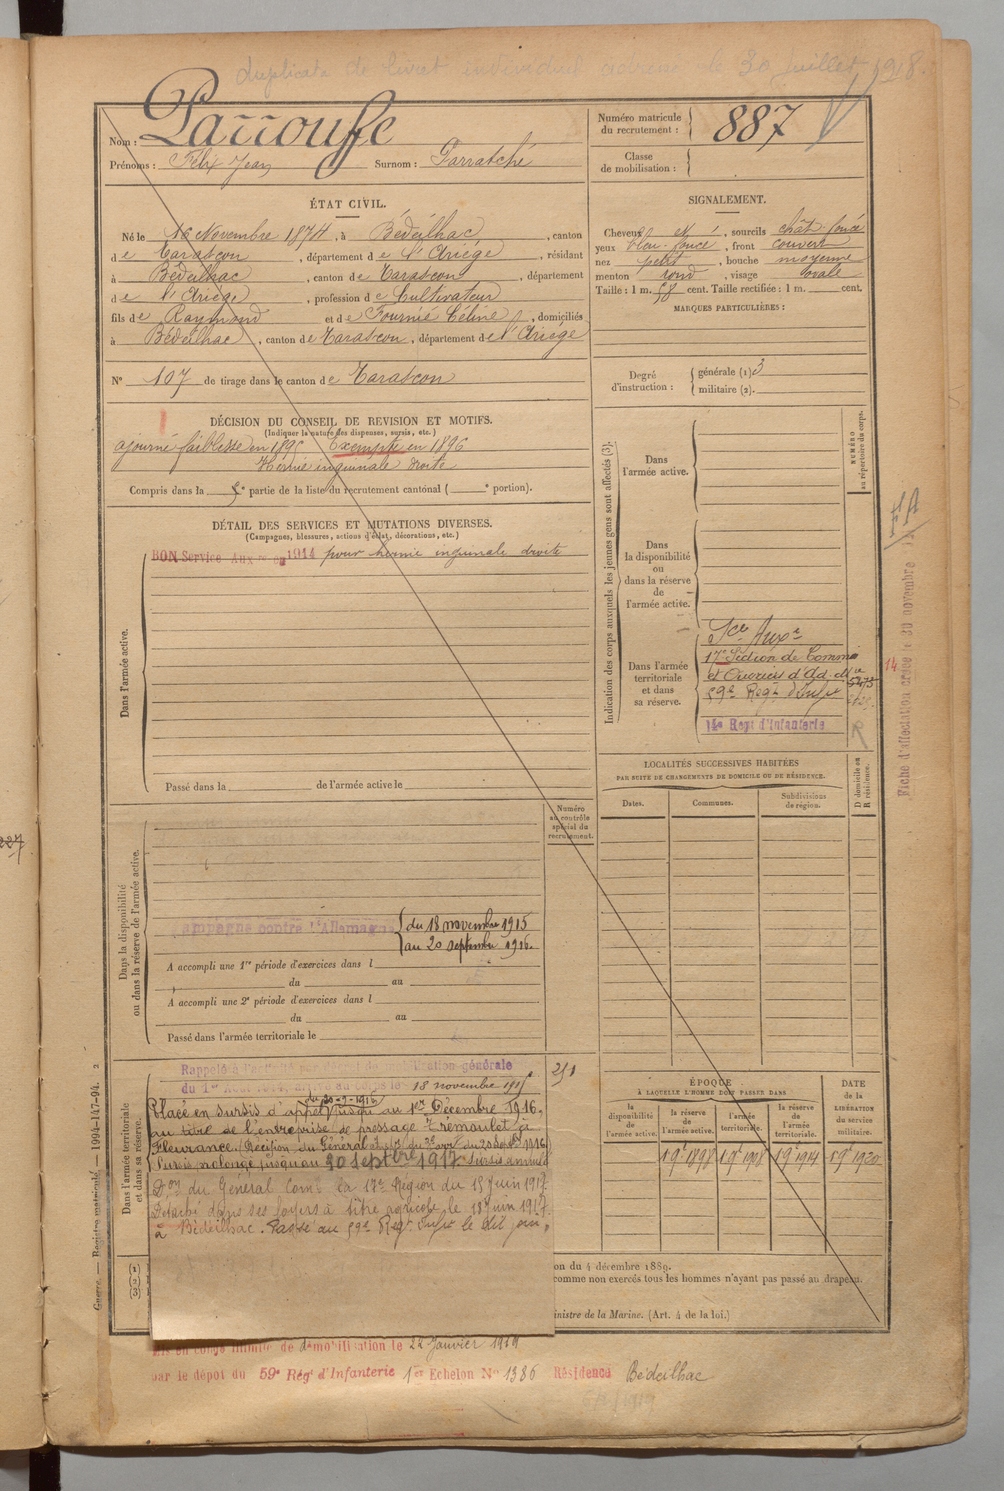 duplicata de livret individuel adressé le 30 juillet 1918.
Nom : Parroufe
Prénoms : Félix Jean Surnom : Parratché
Numéro matricule du recrutement : 887
Classe de mobilisation :
ÉTAT CIVIL.
Né le 16 Novembre 1874, à Bédeilhac, canton
de Tarascon, département de l'Ariége, résidant
à Bédeilhac, canton de Tarascon, département
de l'Ariége, profession de Cultivateur
fils de Raymond et de Fournié Céline, domiciliés
à Bédeilhac, canton de Tarascon, département de l'Ariége
N° 107 de tirage dans le canton de Tarascon
SIGNALEMENT.
Cheveux, sourcils chât foncé
yeux bleu-foncé, front couvert
nez petit, bouche moyenne
menton rond, visage ovale
Taille : 1 m. 58 cent. Taille rectifiée : 1 m. cent.
MARQUES PARTICULIÈRES :
Degré d'instruction : générale (1) 3
militaire (2).
DÉCISION DU CONSEIL DE REVISION ET MOTIFS.
(Indiquer la nature des dispenses, sursis, etc.)
ajourné faiblesse en 1895 Exempté en 1896
Hernie inguinale droite
Compris dans la partie de la liste du recrutement cantonal ( e portion).
DÉTAIL DES SERVICES ET MUTATIONS DIVERSES.
(Campagnes, blessures, actions d'éclat, décorations, etc.)
Dans l'armée active.
BON Service Aux re en 1914 pour hernie inguinale droite
Passé dans la de l'armée active le
Indication des corps auxquels les jeunes gens sont affectés (3).
NUMÉRO au répertoire du corps.
Dans l'armée active.
Dans la disponibilité ou dans la réserve de l'armée active.
Dans l'armée territoriale et dans sa réserve.
Sce Auxre
17e Section de Commis
et Ouvriers d'Ad.
59e Regt d'Infie
14e Regt d'Infanterie
Fiche d'affectation créée le 30 novembre
14
LOCALITÉS SUCCESSIVES HABITÉES
PAR SUITE DE CHANGEMENTS DE DOMICILE OU DE RÉSIDENCE.
Dates. Communes. Subdivisions de région.
D domicile ou R résidence.
Numéro au contrôle spécial du recrutement.
Dans la disponibilité ou dans la réserve de l'armée active.
Campagne contre l'Allemagne du 18 novembre 1915
au 20 septembre 1916.
A accompli une 1re période d'exercices dans l
du au
A accompli une 2e période d'exercices dans l
du au
Passé dans l'armée territoriale le
Dans l'armée territoriale et dans sa réserve.
Rappelé à l'activité par décret de mobilisation générale
du 1er Août 1914, arrivé au corps le 18 novembre 1915
du 20-9-1916
Placé en sursis d'appel jusqu'au 1er Décembre 1916,
au titre de l'entreprise de pressage Trémoulet à
Fleurance. (Décision du Général
Sursis prolongé jusqu'au 30 septbre 1917. Sursis annulé
Don du Général Comt la 17e Région du 15 juin 1917.
Détaché dans ses foyers à titre agricole le 18 juin 1917.
à Bédeilhac. Passé au 59e Regt Infie le dit jour.
ÉPOQUE
À LAQUELLE L'HOMME DOIT PASSER DANS
la disponibilité de l'armée active. la réserve de l'armée active. l'armée territoriale. la réserve de l'armée territoriale. DATE de la LIBÉRATION du service militaire.
1 9e 1898 1 9e 1908 1 9e 1914 1 9e 1920
on du 4 décembre 1889.
comme non exercés tous les hommes n'ayant pas passé au drapeau.
inistre de la Marine. (Art. 4 de la loi.)
(1)
(2)
(3)
Mis en congé illimité de démobilisation le 22 Janvier 1919
par le dépôt du 59e Régt d'Infanterie 1er Echelon N° 1386 Résidence Bédeilhac
Guerre. — Registre matricule. — 1994-147-94. 2